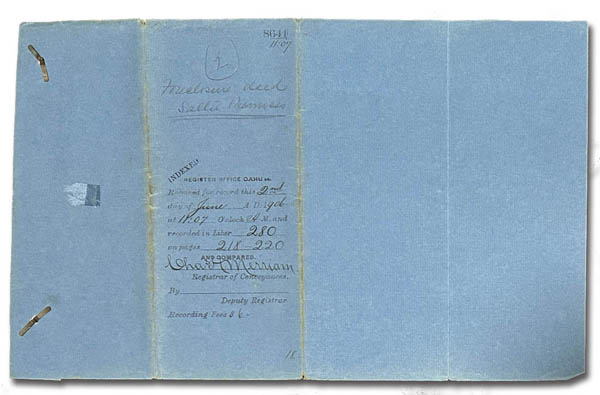 8641
11:07
2
Foreclosure deed
INDEXED
REGISTER OFFICE OAHU ss.
Received for record this 2nd
day of June A. D. 1906
at 11:07 O'clock A M. and
recorded in Liber 280
on pages 218-220
AND COMPARED.
Chas H Merriam
Registrar of Conveyances.
By
Deputy Registrar
Recording Fees $ 6-
18